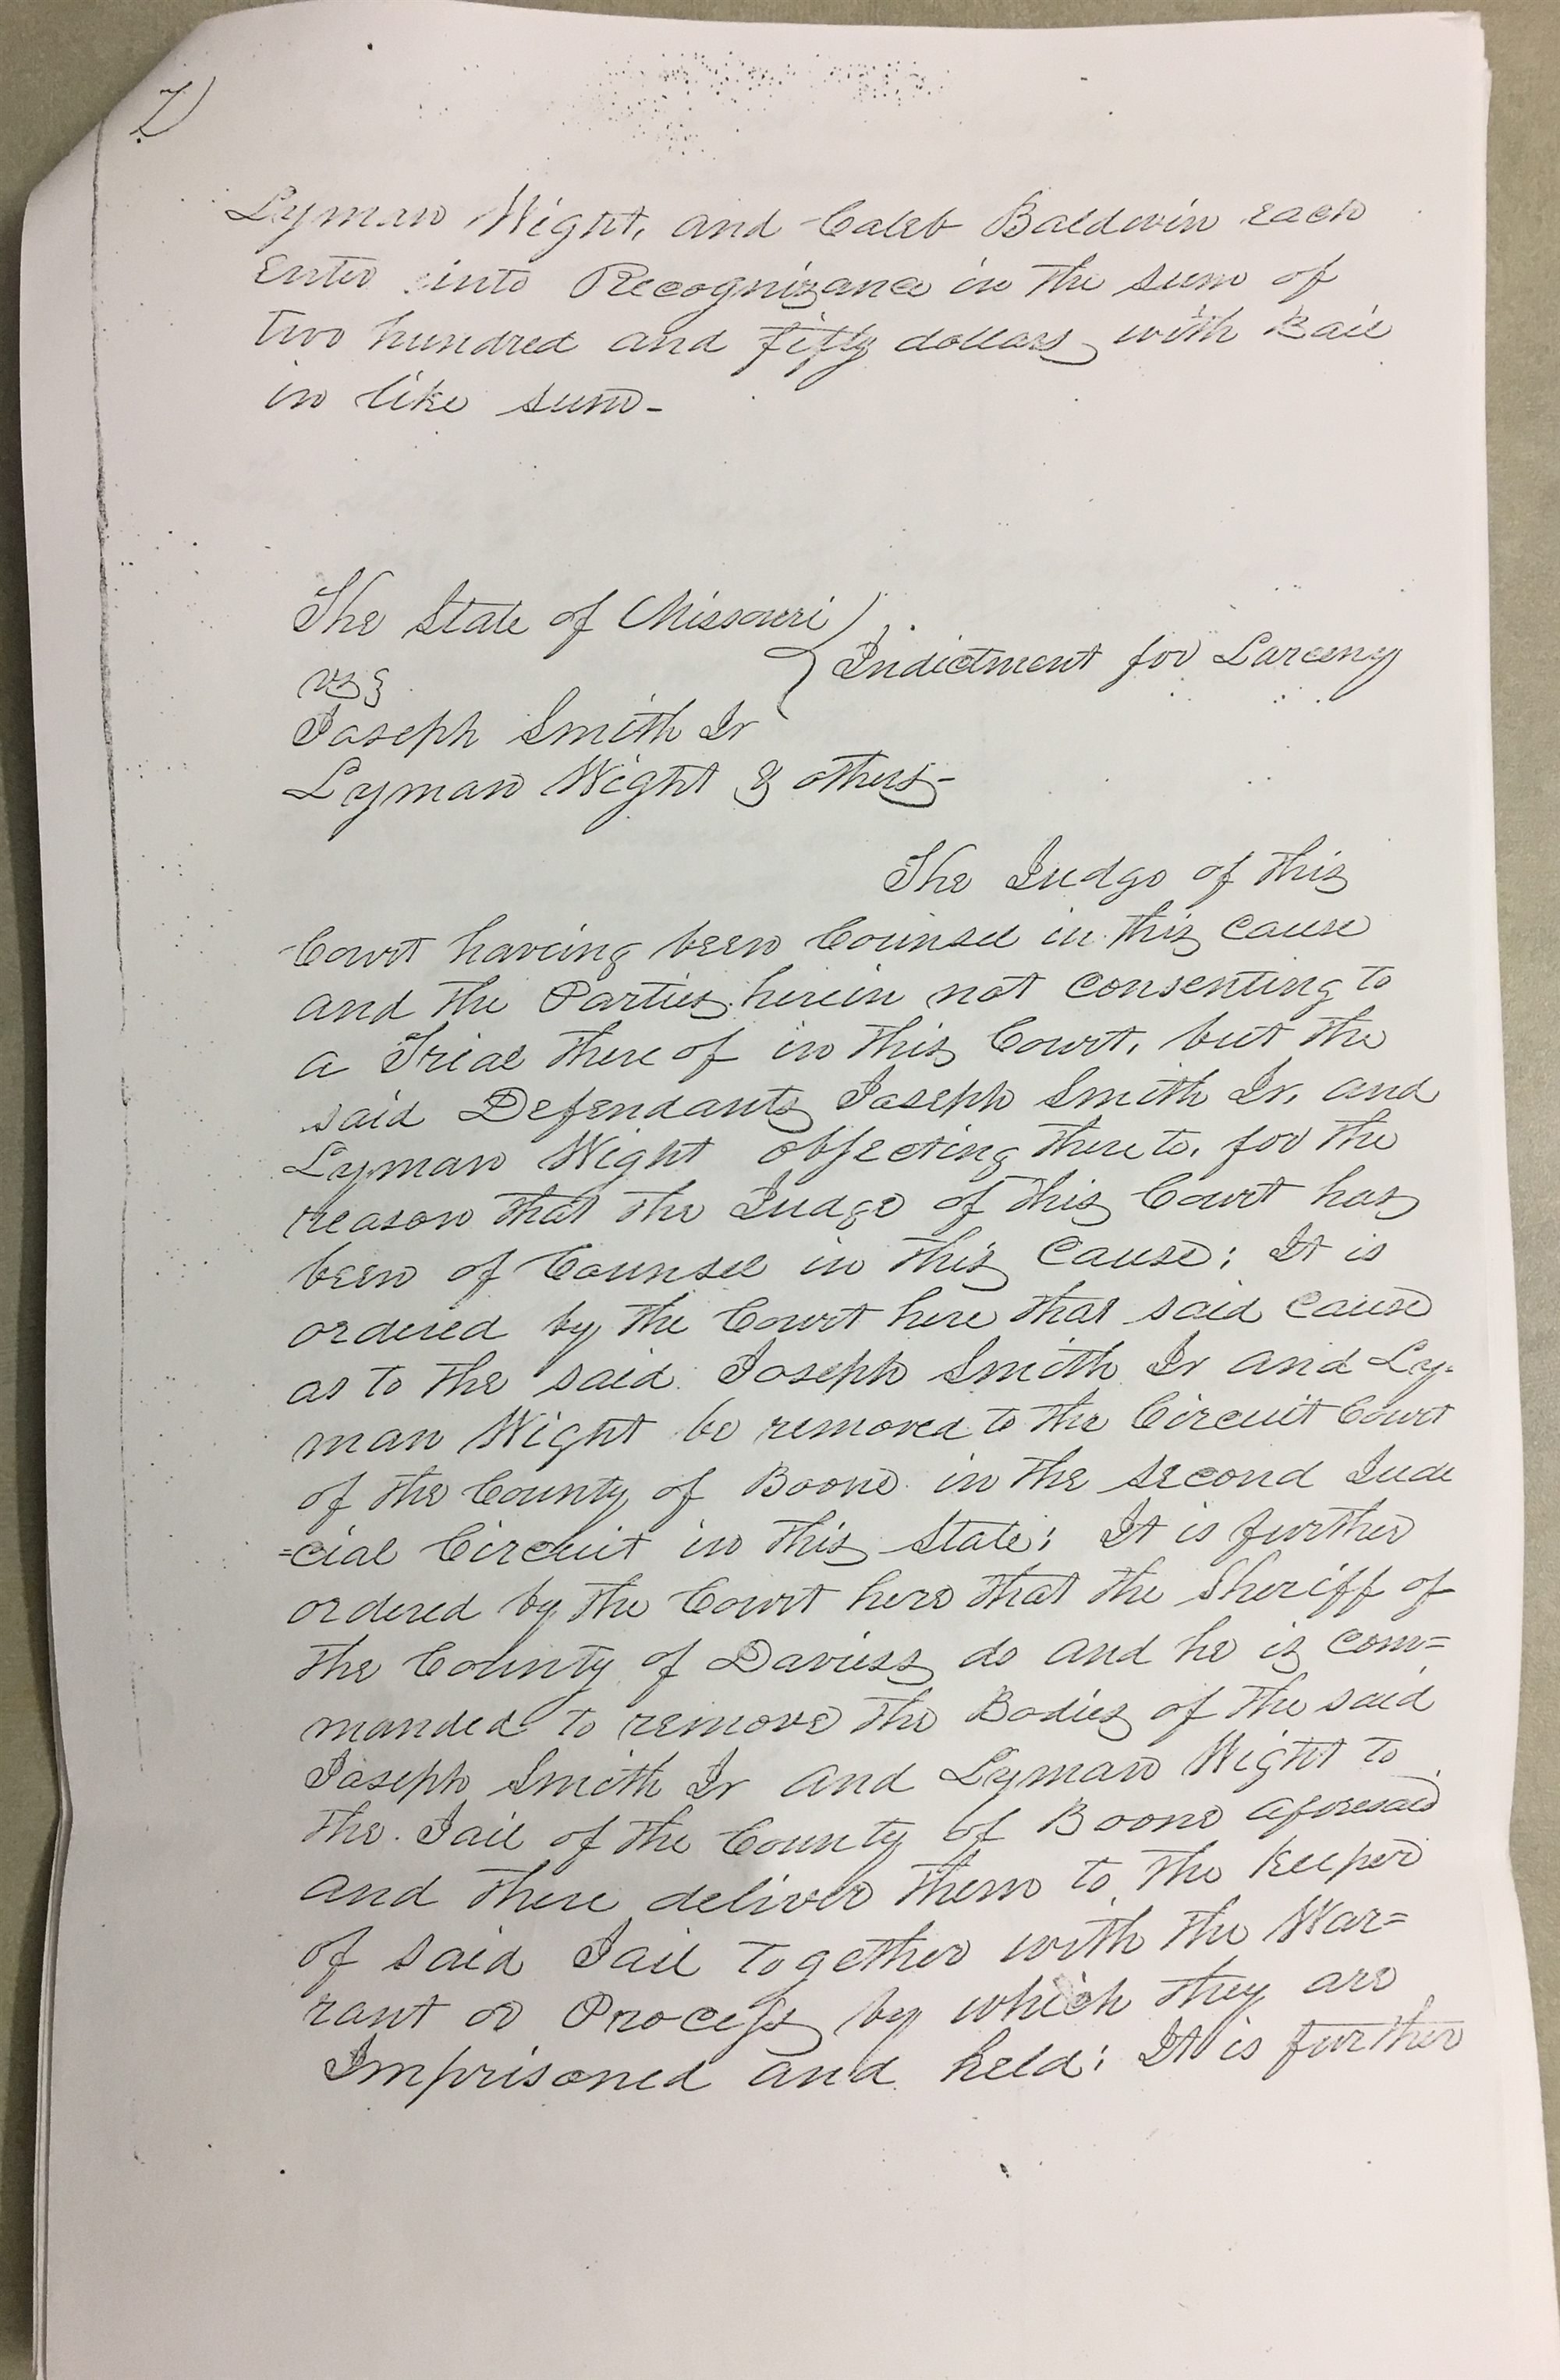 7)
Lyman Wight, and Caleb Baldwin each
Enter into Recognizance in the sum of
two hundred and fifty dollars with Bail
in like sum-
The State of Missouri
vs } Indictment for Larceny
Joseph Smith Jr
Lyman Wight & others-
The Judge of this
Court having been Counsel in this cause
and the Parties herein not consenting to
a Trial there of in this Court, but the
said Defendants Joseph Smith Jr, and
Lyman Wight objecting there to, for the
reason that the Judge of this Court has
been of Counsel in this Cause; It is
ordered by the Court here that said cause
as to the said Joseph Smith Jr and Ly-
man Wight be removed to the Circuit Court
of the County of Boone in the second Judi
=cial Circuit in this State; It is further
ordered by the Court here that the Sheriff of
the County of Daviess do and he is com=
manded to remove the Bodies of the said
Joseph Smith Jr and Lyman Wight to
the Jail of the County of Boone aforesaid
and there deliver them to the Keeper
of said Jail together with the War=
rant or Process by which they are
Imprisoned and held; It is further